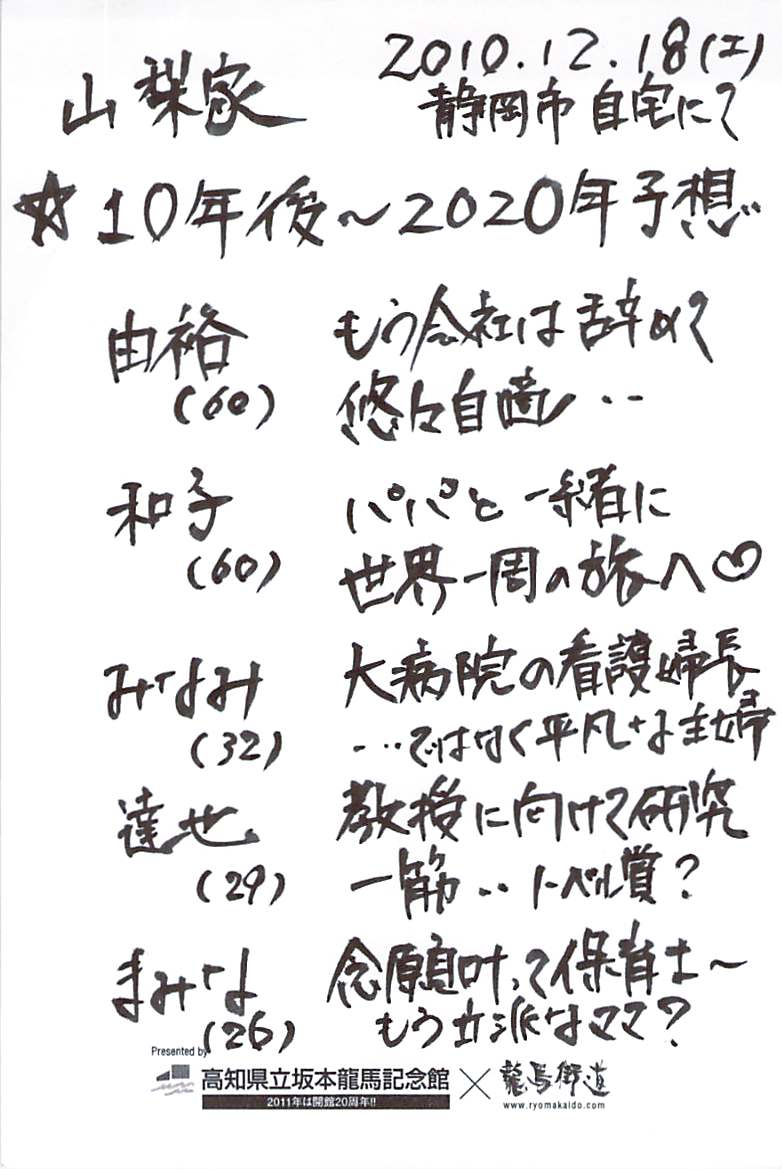 2010.12.18(土)
山梨家
静岡市 自宅にて
☆10年後～2020年予想
由裕 もう会社は辞めて
(60) 悠々自適‥
和子 パパと一緒に
(60) 世界一周の旅へ♡
みなみ 大病院の看護婦長
(32) …ではなく平凡な主婦
達也 教授に向けて研究
(29) 一筋‥ノーベル賞?
まみな 念願叶って保育士～
(26) もう立派なママ?
Presented by
高知県立坂本龍馬記念館 × 龍馬街道
2011年は開館20周年!!
www.ryomakaido.com